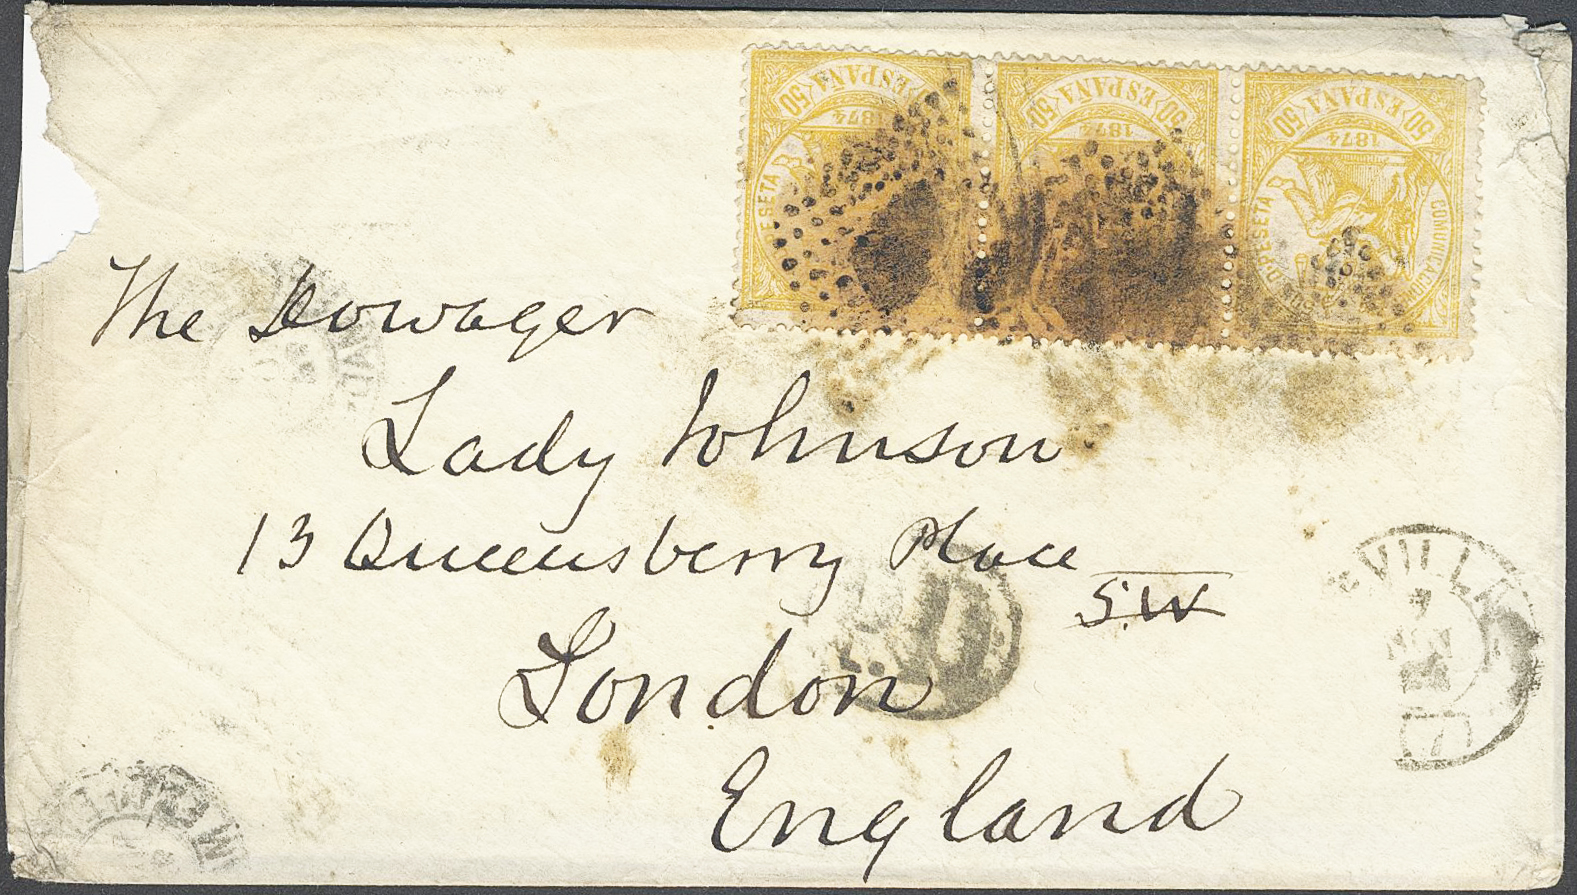 50 ESPAÑA 50
1874
PESETA
50 ESPAÑA 50
1874
50 ESPAÑA 50
1874
PESETA
The Dowager
Lady Johnson
13 Queensberry Place
S.W
London
England